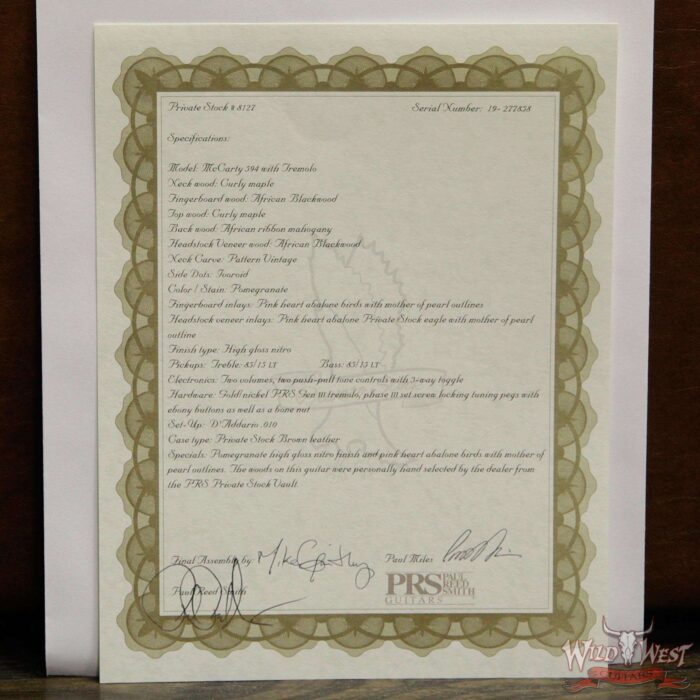 Private Stock # 8127 Serial Number: 19- 277838
Specifications:
Model: McCarty 594 with Tremolo
Neck wood: Curly maple
Fingerboard wood: African Blackwood
Top wood: Curly maple
Back wood: African ribbon mahogany
Headstock Veneer wood: African Blackwood
Neck Carve: Pattern Vintage
Side Dots: Tooroid
Color / Stain: Pomegranate
Fingerboard inlays: Pink heart abalone birds with mother of pearl outlines
Headstock veneer inlays: Pink heart abalone Private Stock eagle with mother of pearl
outline
Finish type: High gloss nitro
Pickups: Treble: 85/15 LT Bass: 85/15 LT
Electronics: Two volumes, two push-pull tone controls with 3-way toggle
Hardware: Gold/nickel PRS Gen III tremolo, phase III set screw locking tuning pegs with
ebony buttons as well as a bone nut
Set-Up: D'Addario .010
Case type: Private Stock Brown leather
Specials: Pomegranate high gloss nitro finish and pink heart abalone birds with mother of
pearl outlines. The woods on this guitar were personally hand selected by the dealer from
the PRS Private Stock Vault.
Final Assembly by: Paul Miles
Paul Reed Smith
PRS PAUL REED SMITH
GUITARS
WILD WEST
GUITARS